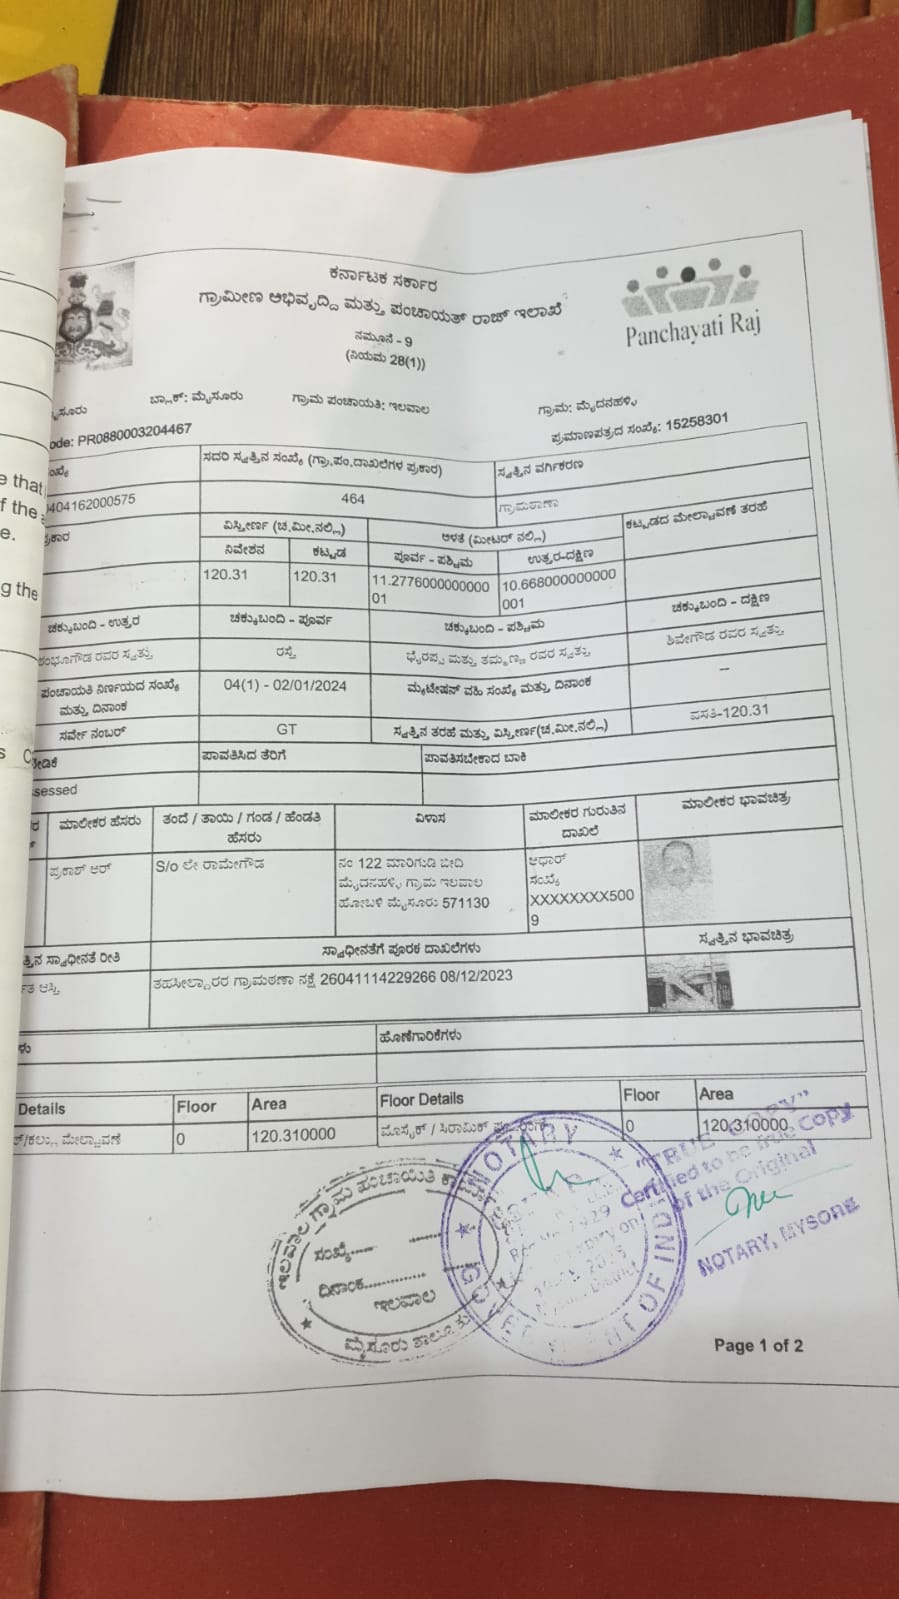 ಕರ್ನಾಟಕ ಸರ್ಕಾರ
ಗ್ರಾಮೀಣ ಅಭಿವೃದ್ದಿ ಮತ್ತು ಪಂಚಾಯತ್ ರಾಜ್ ಇಲಾಖೆ
ನಮೂನೆ - 9
(ನಿಯಮ 28(1))
Panchayati Raj
ಬ್ಲಾಕ್: ಮೈಸೂರು ಗ್ರಾಮ ಪಂಚಾಯತಿ: ಇಲವಾಲ ಗ್ರಾಮ: ಮೈದನಹಳ್ಳಿ
ode: PR0880003204467 ಪ್ರಮಾಣಪತ್ರದ ಸಂಖ್ಯೆ: 15258301
ಸದರಿ ಸ್ವತ್ತಿನ ಸಂಖ್ಯೆ (ಗ್ರಾ.ಪಂ.ದಾಖಲೆಗಳ ಪ್ರಕಾರ) ಸ್ವತ್ತಿನ ವರ್ಗೀಕರಣ
404162000575 464 ಗ್ರಾಮಠಾಣಾ
ವಿಸ್ತೀರ್ಣ (ಚ.ಮೀ.ನಲ್ಲಿ) ಅಳತೆ (ಮೀಟರ್ ನಲ್ಲಿ) ಕಟ್ಟಡದ ಮೇಲ್ಚಾವಣೆ ತರಹೆ
ನಿವೇಶನ ಕಟ್ಟಡ ಪೂರ್ವ - ಪಶ್ಚಿಮ ಉತ್ತರ-ದಕ್ಷಿಣ
120.31 120.31 11.2776000000000 10.668000000000
01 001
ಚಕ್ಕುಬಂದಿ - ಉತ್ತರ ಚಕ್ಕುಬಂದಿ - ಪೂರ್ವ ಚಕ್ಕುಬಂದಿ - ಪಶ್ಚಿಮ ಚಕ್ಕುಬಂದಿ - ದಕ್ಷಿಣ
ಶಂಭೂಗೌಡ ರವರ ಸ್ವತ್ತು ರಸ್ತೆ ಭೈರಪ್ಪ ಮತ್ತು ತಮ್ಮಣ್ಣ ರವರ ಸ್ವತ್ತು ಶಿವೇಗೌಡ ರವರ ಸ್ವತ್ತು
ಪಂಚಾಯತಿ ನಿರ್ಣಯದ ಸಂಖ್ಯೆ 04(1) - 02/01/2024 ಮ್ಯುಟೇಷನ್ ವಹಿ ಸಂಖ್ಯೆ ಮತ್ತು ದಿನಾಂಕ --
ಮತ್ತು ದಿನಾಂಕ
ಸರ್ವೇ ನಂಬರ್ GT ಸ್ವತ್ತಿನ ತರಹೆ ಮತ್ತು ವಿಸ್ತೀರ್ಣ(ಚ.ಮೀ.ನಲ್ಲಿ) ವಸತಿ-120.31
ಪಾವತಿಸಿದ ತೆರಿಗೆ ಪಾವತಿಸಬೇಕಾದ ಬಾಕಿ
ssessed
ಮಾಲೀಕರ ಹೆಸರು ತಂದೆ / ತಾಯಿ / ಗಂಡ / ಹೆಂಡತಿ ವಿಳಾಸ ಮಾಲೀಕರ ಗುರುತಿನ ಮಾಲೀಕರ ಭಾವಚಿತ್ರ
ಹೆಸರು ದಾಖಲೆ
ಪ್ರಕಾಶ್ ಆರ್ S/o ಲೇ ರಾಮೇಗೌಡ ನಂ 122 ಮಾರಿಗುಡಿ ಬೀದಿ ಆಧಾರ್
ಮೈದನಹಳ್ಳಿ ಗ್ರಾಮ ಇಲವಾಲ ಸಂಖ್ಯೆ
ಹೋಬಳಿ ಮೈಸೂರು 571130 XXXXXXXX500
9
ಸ್ವಾಧೀನತೆ ರೀತಿ ಸ್ವಾಧೀನತೆಗೆ ಪೂರಕ ದಾಖಲೆಗಳು ಸ್ವತ್ತಿನ ಭಾವಚಿತ್ರ
ಆಸ್ತಿ ತಹಸೀಲ್ದಾರರ ಗ್ರಾಮಠಣಾ ನಕ್ಷೆ 26041114229266 08/12/2023
ಹೊಣೆಗಾರಿಕೆಗಳು
Details Floor Area Floor Details Floor Area
ಮೇಲ್ಚಾವಣೆ 0 120.310000 ಮೊಸೈಕ್ / ಸಿರಾಮಿಕ್ 0 120.310000
"TRUE COPY"
Certified to be true Copy
of the Original
NOTARY, MYSORE
NOTARY
ಇಲವಾಲ ಗ್ರಾಮ ಪಂಚಾಯಿತಿ
ಸಂಖ್ಯೆ
ದಿನಾಂಕ
ಇಲವಾಲ
ಮೈಸೂರು ತಾಲೂಕು
Page 1 of 2